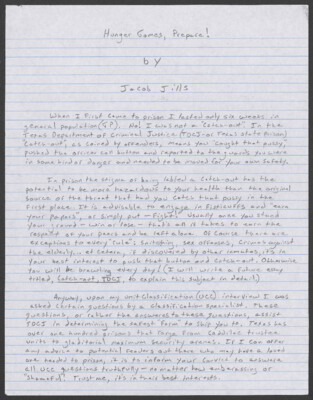 Hunger Games, Prepare!
by
Jacob Jills
When I first came to prison I lasted only six weeks in
general population (GP). No! I was not a "catch-out". In the
Texas Department of Criminal Justice (TDCJ - or Texas state prison)
"catch-out", as coined by offenders, means you "caught that pussy,"
pushed the officer call button and reported to the guards you were
in some kind of danger and needed to be moved for your own safety.
In prison the stigma of being labled a catch-out has the
potential to be more hazardous to your health than the original
source of the threat that had you catch that pussy in the
first place. It is advisable to engage in fisticuffs and "earn
your papers", or simply put - fight! Usually once you stand
your ground - win or lose - that's all it takes to earn the
respect of your peers and left alone. Of course there are
exceptions to every "rule". Snitching, sex offenses, crimes against
the elderly... et cetera, if discovered by other inmates, it's in
your best interest to push that button and catch-out. Otherwise
you will be brawling every day! (I will write a future essay
titled, Catch-out, TDCJ, to explain this subject in detail)
Anyway, upon my Unit Classification (UCC) interview I was
asked certain questions by a classification specialist. These
questions, or rather the answers to these questions, assist
TDCJ in determining the target farm to ship you to. Texas has
over one hundred prisons that range from Cadillac trustee
units to gladitorial maximum security arenas. If I can offer
any advice to potential readers out there who may have a loved
one headed to prison, it is to inform your convict to answer
all UCC questions truthfully - no matter how embarrassing or
"shameful". Trust me, it's in their best interests.